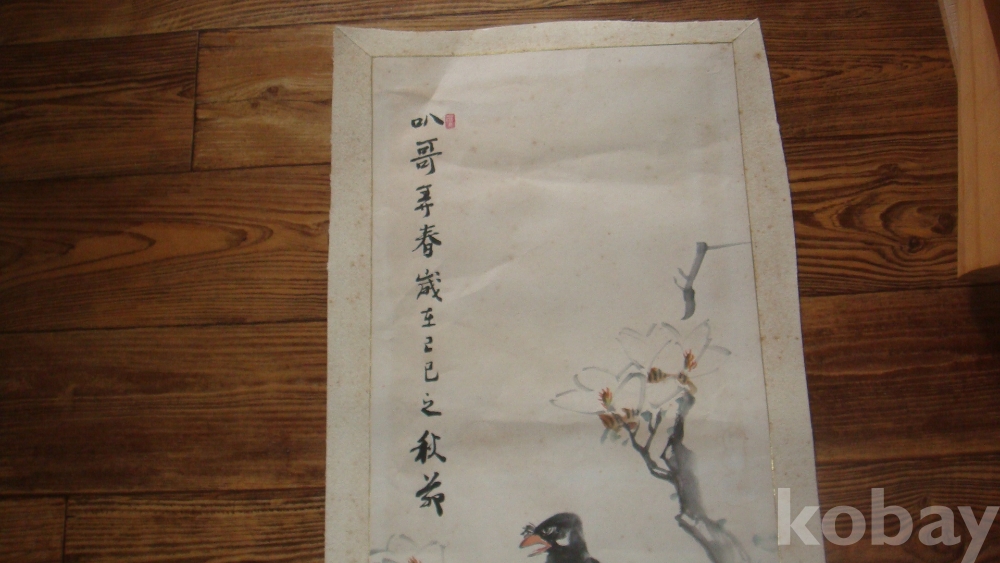 叭哥弄春歲在己巳之秋節
kobay